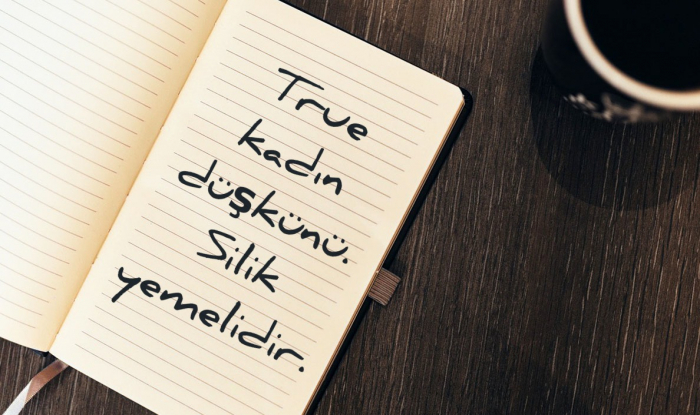 True
kadın
düşkünü.
Silik
yemelidir.